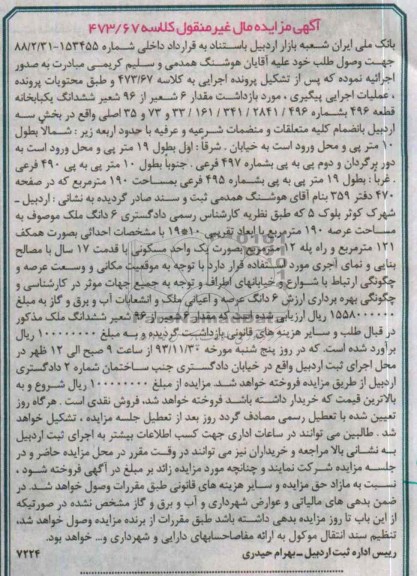 آگهی مزایده مال غیر منقول کلاسه ۴۷۳/۶۷
بانک ملی ایران شعبه بازار اردبیل باستناد به قرارداد داخلی شماره ۱۵۳۴۵۵-۸۸/۲/۳۱
جهت وصول طلب خود علیه آقایان هوشنگ همدمی و سلیم کریمی مبادرت به صدور
اجرائیه نموده که پس از تشکیل پرونده اجرایی به کلاسه ۴۷۳/۶۷ و طبق محتویات پرونده
، عملیات اجرایی پیگیری ، مورد بازداشت مقدار ۶ شعیر از ۹۶ شعیر ششدانگ یکبابخانه
قطعه ۴۹۶ بشماره ۴۹۶ / ۲۸۴۱ / ۳۴۱ / ۱۶۱ / ۳۳ و ۷۳ و ۳۵ اصلی واقع در بخش سه
اردبیل بانضمام کلیه متعلقات و منضمات شرعیه و عرفیه با حدود اربعه زیر : شمالا بطول
۱۰ متر پی و محل ورود است به خیابان . شرقا : اول بطول ۱۹ متر پی و محل ورود است به
دور برگردان و دوم پی به پی بشماره ۴۹۷ فرعی . جنوبا بطول ۱۰ متر پی به پی ۴۹۰ فرعی
. غربا : بطول ۱۹ متر پی به پی بشماره ۴۹۵ فرعی بمساحت ۱۹۰ مترمربع که در صفحه
۴۷۰ دفتر ۳۵۹ بنام آقای هوشنگ همدمی ثبت و سند صادر گردیده به نشانی : اردبیل ـ
شهرک کوثر بلوک ۵ که طبق نظریه کارشناس رسمی دادگستری ۶ دانگ ملک موصوف به
مساحت عرصه ۱۹۰ مترمربع با ابعاد تقریبی ۱۰*۱۹ با مشخصات احداثی بصورت همکف
۱۲۱ مترمربع و راه پله ۱۲ مترمربع بصورت یک واحد مسکونی با قدمت ۱۷ سال با مصالح
بنایی و نمای آجری مورد استفاده قرار دارد با توجه به موقعیت مکانی و وسعت عرصه و
چگونگی ارتباط با شوارع و خیابانهای اطراف و توجه به جمیع جهات موثر در کارشناسی و
چگونگی بهره برداری ارزش ۶ دانگ عرصه و اعیانی ملک و انشعابات آب و برق و گاز به مبلغ
ریال ارزیابی شده است که مقدار ۶ شعیر از ۹۶ شعیر ششدانگ ملک مذکور
در قبال طلب و سایر هزینه های قانونی بازداشت گردیده و به مبلغ ۱۰۰۰۰۰۰۰۰ ریال
برآورد شده است. که در روز پنج شنبه مورخه ۹۳/۱۱/۳۰ از ساعت ۹ صبح الی ۱۲ ظهر در
محل اجرای ثبت اردبیل واقع در خیابان دادگستری جنب ساختمان شماره ۲ دادگستری
اردبیل از طریق مزایده فروخته خواهد شد. مزایده از مبلغ ۱۰۰۰۰۰۰۰۰ ریال شروع و به
بالاترین قیمت که خریدار داشته باشد فروخته خواهد شد، فروش نقدی است . هرگاه روز
تعیین شده با تعطیل رسمی مصادف گردد روز بعد از تعطیل جلسه مزایده ، تشکیل خواهد
شد . طالبین می توانند در ساعات اداری جهت کسب اطلاعات بیشتر به اجرای ثبت اردبیل
به نشانی بالا مراجعه و خریداران نیز می توانند در وقت مقرر در محل مزایده حاضر و در
جلسه مزایده شرکت نمایند و چنانچه مورد مزایده زائد بر مبلغ در آگهی فروخته شود ،
نسبت به مازاد حق مزایده و سایر هزینه های قانونی طبق مقررات وصول خواهد شد. در
ضمن بدهی های مالیاتی و عوارض شهرداری و آب و برق و گاز مشخص نشده در صورتیکه
از این باب تا روز مزایده بدهی داشته باشد طبق مقررات از برنده مزایده وصول خواهد شد،
تنظیم سند انتقال موکول به ارائه مفاصاحسابهای دارایی و شهرداری و... خواهد بود.
رییس اداره ثبت اردبیل ـ بهرام حیدری ۷۲۲۴